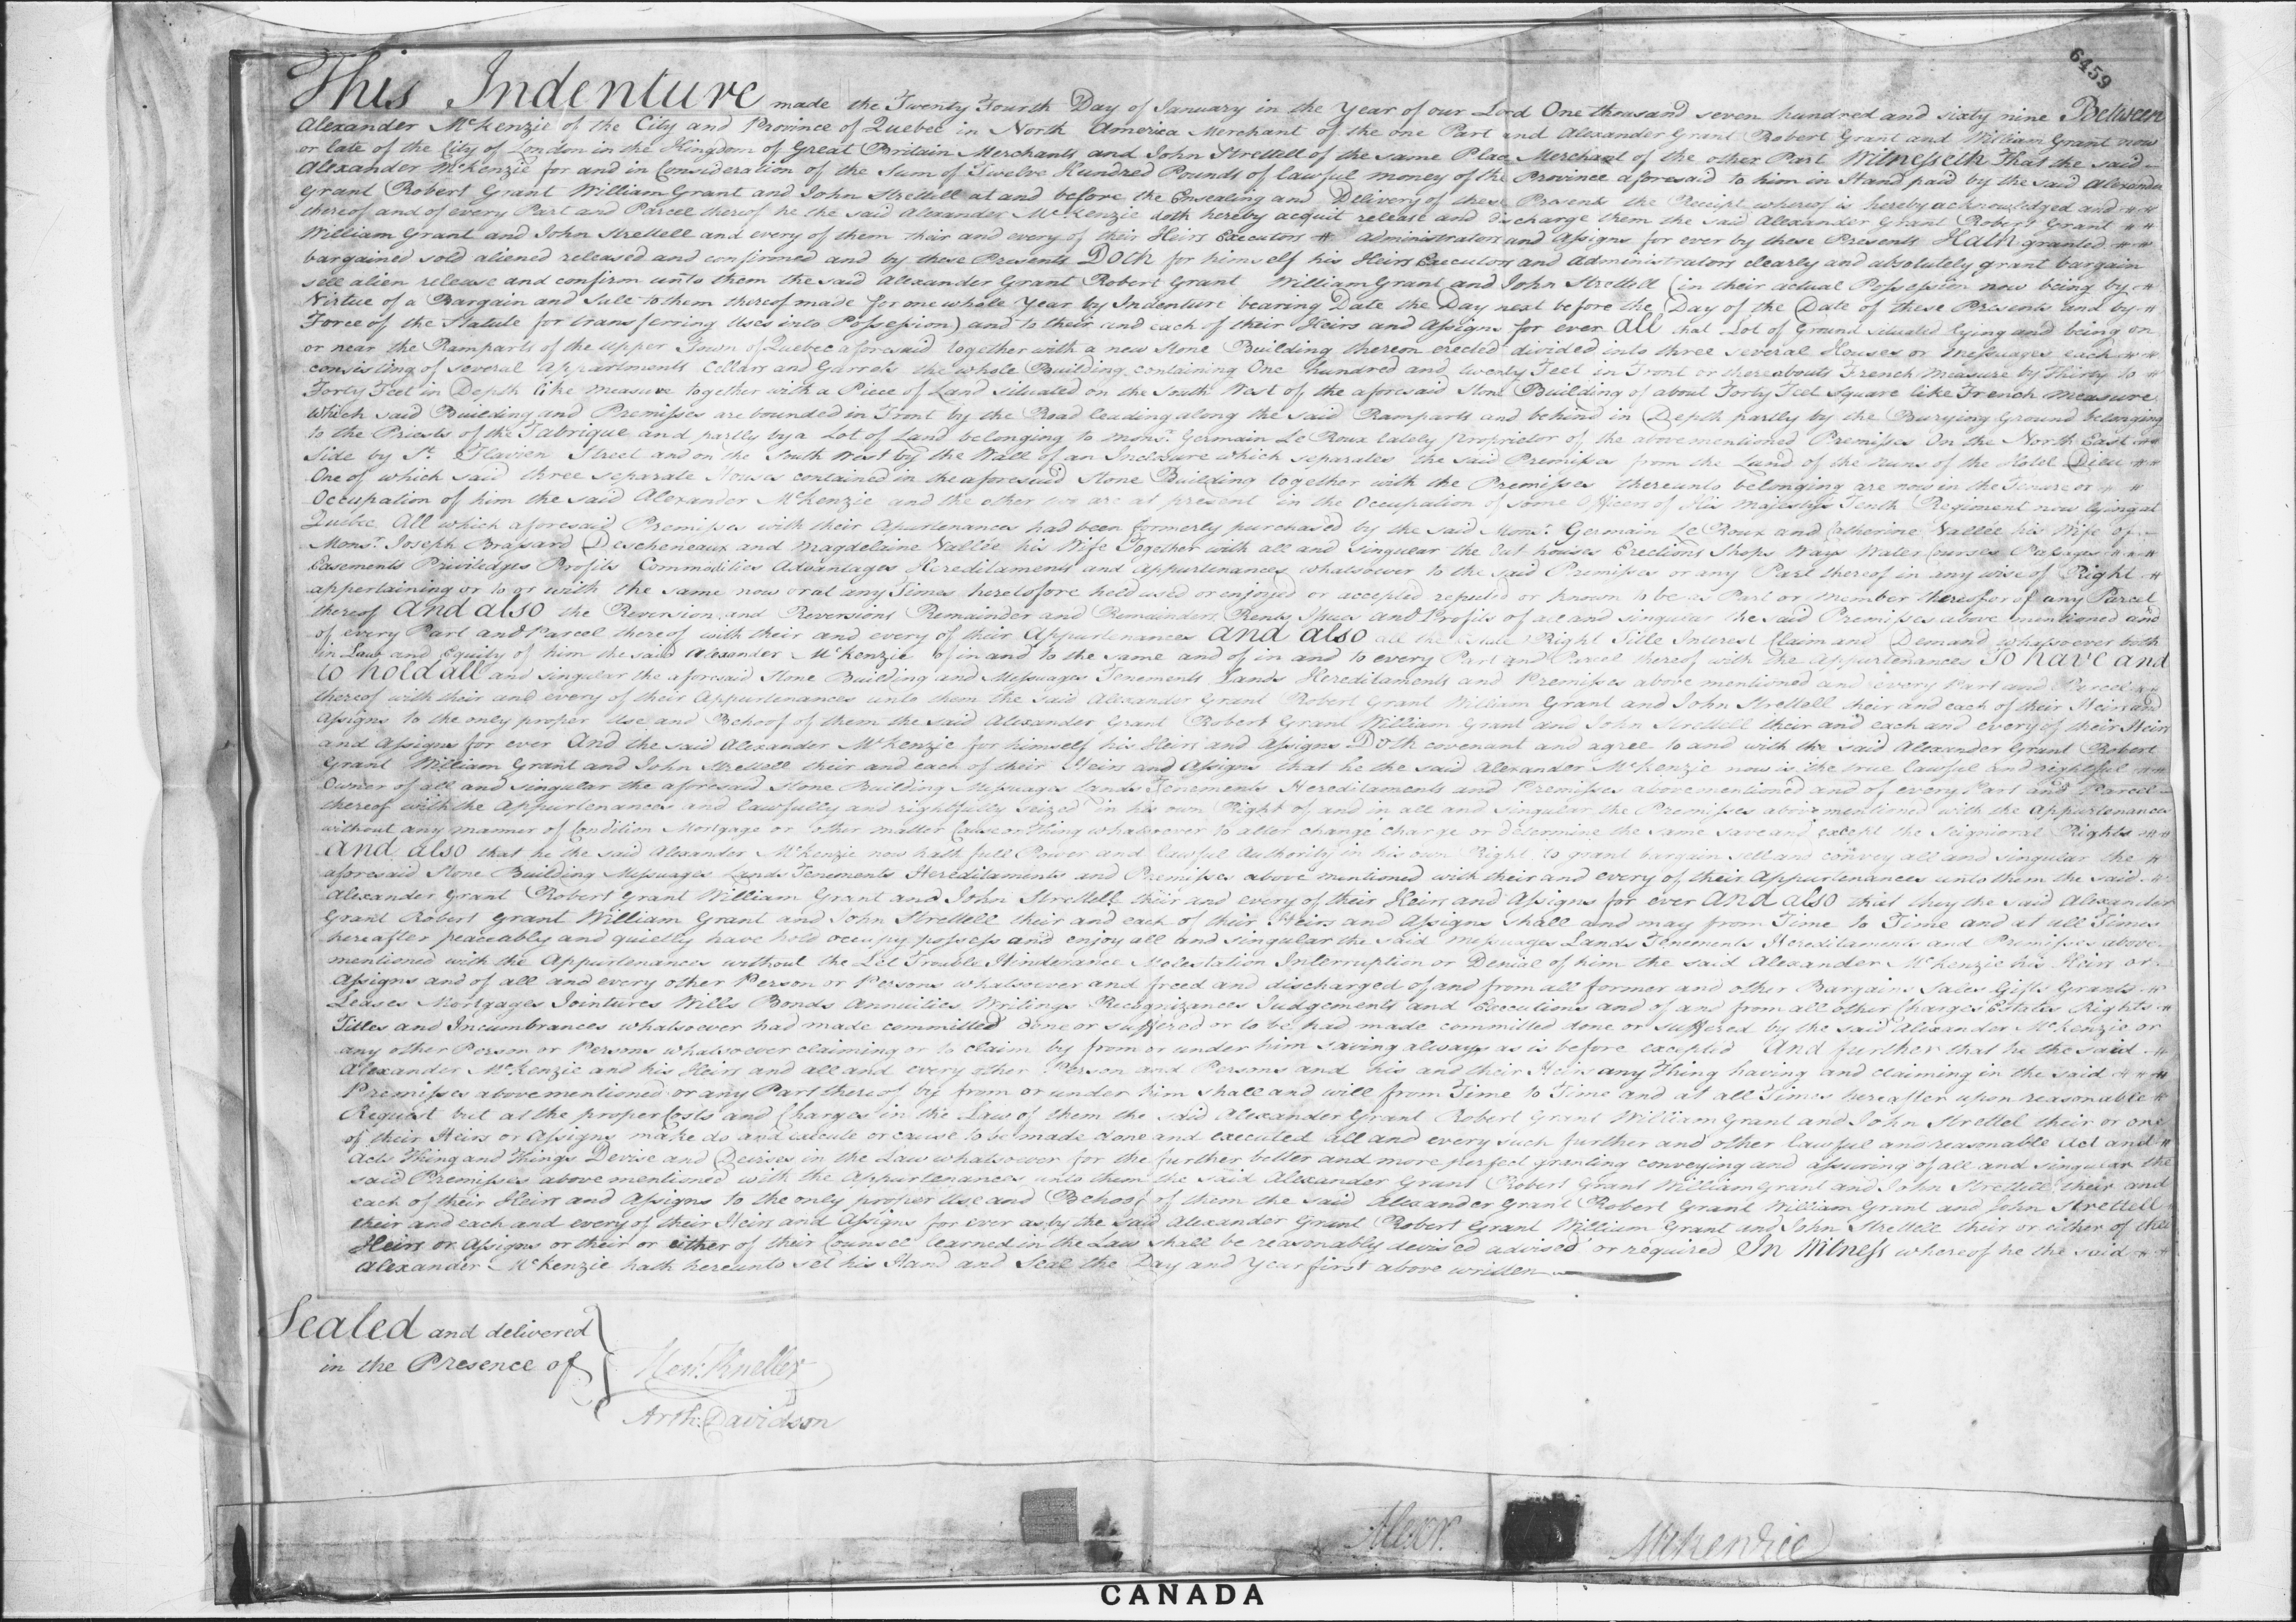 6459
This Indenture made the Twenty Fourth Day of January in the Year of our Lord One thousand seven hundred and sixty nine Between
Alexander McKenzie of the City and Province of Quebec in North America Merchant of the one Part and Alexander Grant Robert Grant and William Grant now
or late of the City of London in the Kingdom of Great Britain Merchants and John Strettell of the same Place Merchant of the other Part Witnesseth That the said
Alexander McKenzie for and in Consideration of the Sum of Twelve Hundred Pounds of lawful Money of the Province aforesaid to him in Hand paid by the said Alexander
Grant Robert Grant William Grant and John Strettell at and before the Ensealing and Delivery of these Presents the Receipt whereof is hereby acknowledged and
thereof and of every Part and Parcel thereof he the said Alexander McKenzie doth hereby acquit release and discharge them the said Alexander Grant Robert Grant
William Grant and John Strettell and every of them their and every of their Heirs Executors Administrators and Assigns for ever by these Presents Hath granted
bargained sold aliened released and confirmed and by these Presents Doth for himself his Heirs Executors and Administrators clearly and absolutely grant bargain
sell alien release and confirm unto them the said Alexander Grant Robert Grant William Grant and John Strettell (in their actual Possession now being by
Virtue of a Bargain and Sale to them thereof made for one whole Year by Indenture bearing Date the Day next before the Day of the Date of these Presents and by
Force of the Statute for transferring Uses into Possession) and to their and each of their Heirs and Assigns for ever All that Lot of Ground situated lying and being on
or near the Ramparts of the Upper Town of Quebec aforesaid together with a new Stone Building thereon erected divided into three several Houses or Messuages each
consisting of several Appartments Cellars and Garrets the whole Building containing One hundred and twenty Feet in Front or thereabouts French Measure by Thirty to
Forty Feet in Depth like Measure together with a Piece of Land situated on the South West of the aforesaid Stone Building of about Forty Feet square like French Measure
Which said Building and Premisses are bounded in Front by the Road leading along the said Ramparts and behind in Depth partly by the Burying Ground belonging
to the Priests of the Fabrique and partly by a Lot of Land belonging to Monsr. Germain Le Roux lately Proprietor of the abovementioned Premisses On the North East
Side by St. Flavien Street and on the South West by the Wall of an Inclosure which separates the said Premisses from the Land of the Nuns of the Hotel Dieu
One of which said three separate Houses contained in the aforesaid Stone Building together with the Premisses thereunto belonging are now in the Tenure or
Occupation of him the said Alexander McKenzie and the other two are at present in the Occupation of some Officers of His Majestys Tenth Regiment now lying at
Quebec All which aforesaid Premisses with their Apurtenances had been formerly purchased by the said Monsr. Germain Le Roux and Catherine Vallée his Wife of
Monsr. Joseph Brassard Descheneaux and Magdelaine Vallée his Wife Together with all and singular the Out houses Erections Shops Ways Water Courses Passages
Easements Priviledges Profits Commodities Advantages Hereditaments and Appurtenances whatsoever to the said Premisses or any Part thereof in any wise of Right
appertaining or to or with the same now or at any Times heretofore held used or enjoyed or accepted reputed or known to be as Part or Member thereof or of any Parcel
thereof And also the Reversion and Reversions Remainder and Remainders Rents Issues and Profits of all and singular the said Premisses above mentioned and
of every Part and Parcel thereof with their and every of their Appurtenances And also all the Estate Right Title Interest Claim and Demand whatsoever both
in Law and Equity of him the said Alexander McKenzie of in and to the same and of in and to every Part and Parcel thereof with the Appurtenances To have and
to hold all and singular the aforesaid Stone Building and Messuages Tenements Lands Hereditaments and Premisses above mentioned and every Part and Parcel
thereof with their and every of their Appurtenances unto them the said Alexander Grant Robert Grant William Grant and John Strettell their and each of their Heirs and
Assigns to the only proper Use and Behoof of them the said Alexander Grant Robert Grant William Grant and John Strettell their and each and every of their Heirs
and Assigns for ever And the said Alexander McKenzie for himself his Heirs and Assigns Doth covenant and agree to and with the said Alexander Grant Robert
Grant William Grant and John Strettell their and each of their Heirs and Assigns that he the said Alexander McKenzie now is the true lawful and rightful
Owner of all and singular the aforesaid Stone Building Messuages Lands Tenements Hereditaments and Premisses abovementioned and of every Part and Parcel
thereof with the Appurtenances and lawfully and rightfully seized in his own Right of and in all and singular the Premisses abovementioned with the Appurtenances
without any manner of Condition Mortgage or other matter Cause or Thing whatsoever to alter change charge or determine the same save and except the Seignioral Rights
And also that he the said Alexander McKenzie now hath full Power and lawful Authority in his own Right to grant bargain sell and convey all and singular the
aforesaid Stone Building Messuages Lands Tenements Hereditaments and Premisses above mentioned with their and every of their Appurtenances unto them the said
Alexander Grant Robert Grant William Grant and John Strettell their and every of their Heirs and Assigns for ever And also that they the said Alexander
Grant Robert Grant William Grant and John Strettell their and each of their Heirs and Assigns shall and may from Time to Time and at all Times
hereafter peaceably and quietly have hold occupy possess and enjoy all and singular the said Messuages Lands Tenements Hereditaments and Premisses above
mentioned with the Appurtenances without the Let Trouble Hinderance Molestation Interruption or Denial of him the said Alexander McKenzie his Heirs or
Assigns and of all and every other Person or Persons whatsoever and freed and discharged of and from all former and other Bargains Sales Gifts Grants
Leases Mortgages Jointures Wills Bonds Annuities Writings Recognizances Judgements and Executions and of and from all other Charges Estates Rights
Titles and Incumbrances whatsoever had made committed done or suffered or to be had made committed done or suffered by the said Alexander McKenzie or
any other Person or Persons whatsoever claiming or to claim by from or under him saving always as is before excepted And further that he the said
Alexander McKenzie and his Heirs and all and every other Person and Persons and his and their Heirs any Thing having and claiming in the said
Premisses abovementioned or any Part thereof by from or under him shall and will from Time to Time and at all Times hereafter upon reasonable
Request but at the proper Costs and Charges in the Law of them the said Alexander Grant Robert Grant William Grant and John Strettel their or one
of their Heirs or Assigns make do and execute or cause to be made done and executed all and every such further and other lawful and reasonable Act and
Acts Thing and Things Devise and Devises in the Law whatsoever for the further better and more perfect granting conveying and assuring of all and singular the
said Premisses abovementioned with the Appurtenances unto them the said Alexander Grant Robert Grant William Grant and John Strettell their and
each of their Heirs and Assigns to the only proper Use and Behoof of them the said Alexander Grant Robert Grant William Grant and John Strettell
their and each and every of their Heirs and Assigns for ever as by the said Alexander Grant Robert Grant William Grant and John Strettell their or either of their
Heirs or Assigns or their or either of their Counsel learned in the Law shall be reasonably devised advised or required In Witness whereof he the said
Alexander McKenzie hath hereunto set his Hand and Seal the Day and Year first above written
Sealed and delivered
in the Presence of
Hen: Kneller
Arth: Davidson
Alexr. McKenzie
CANADA